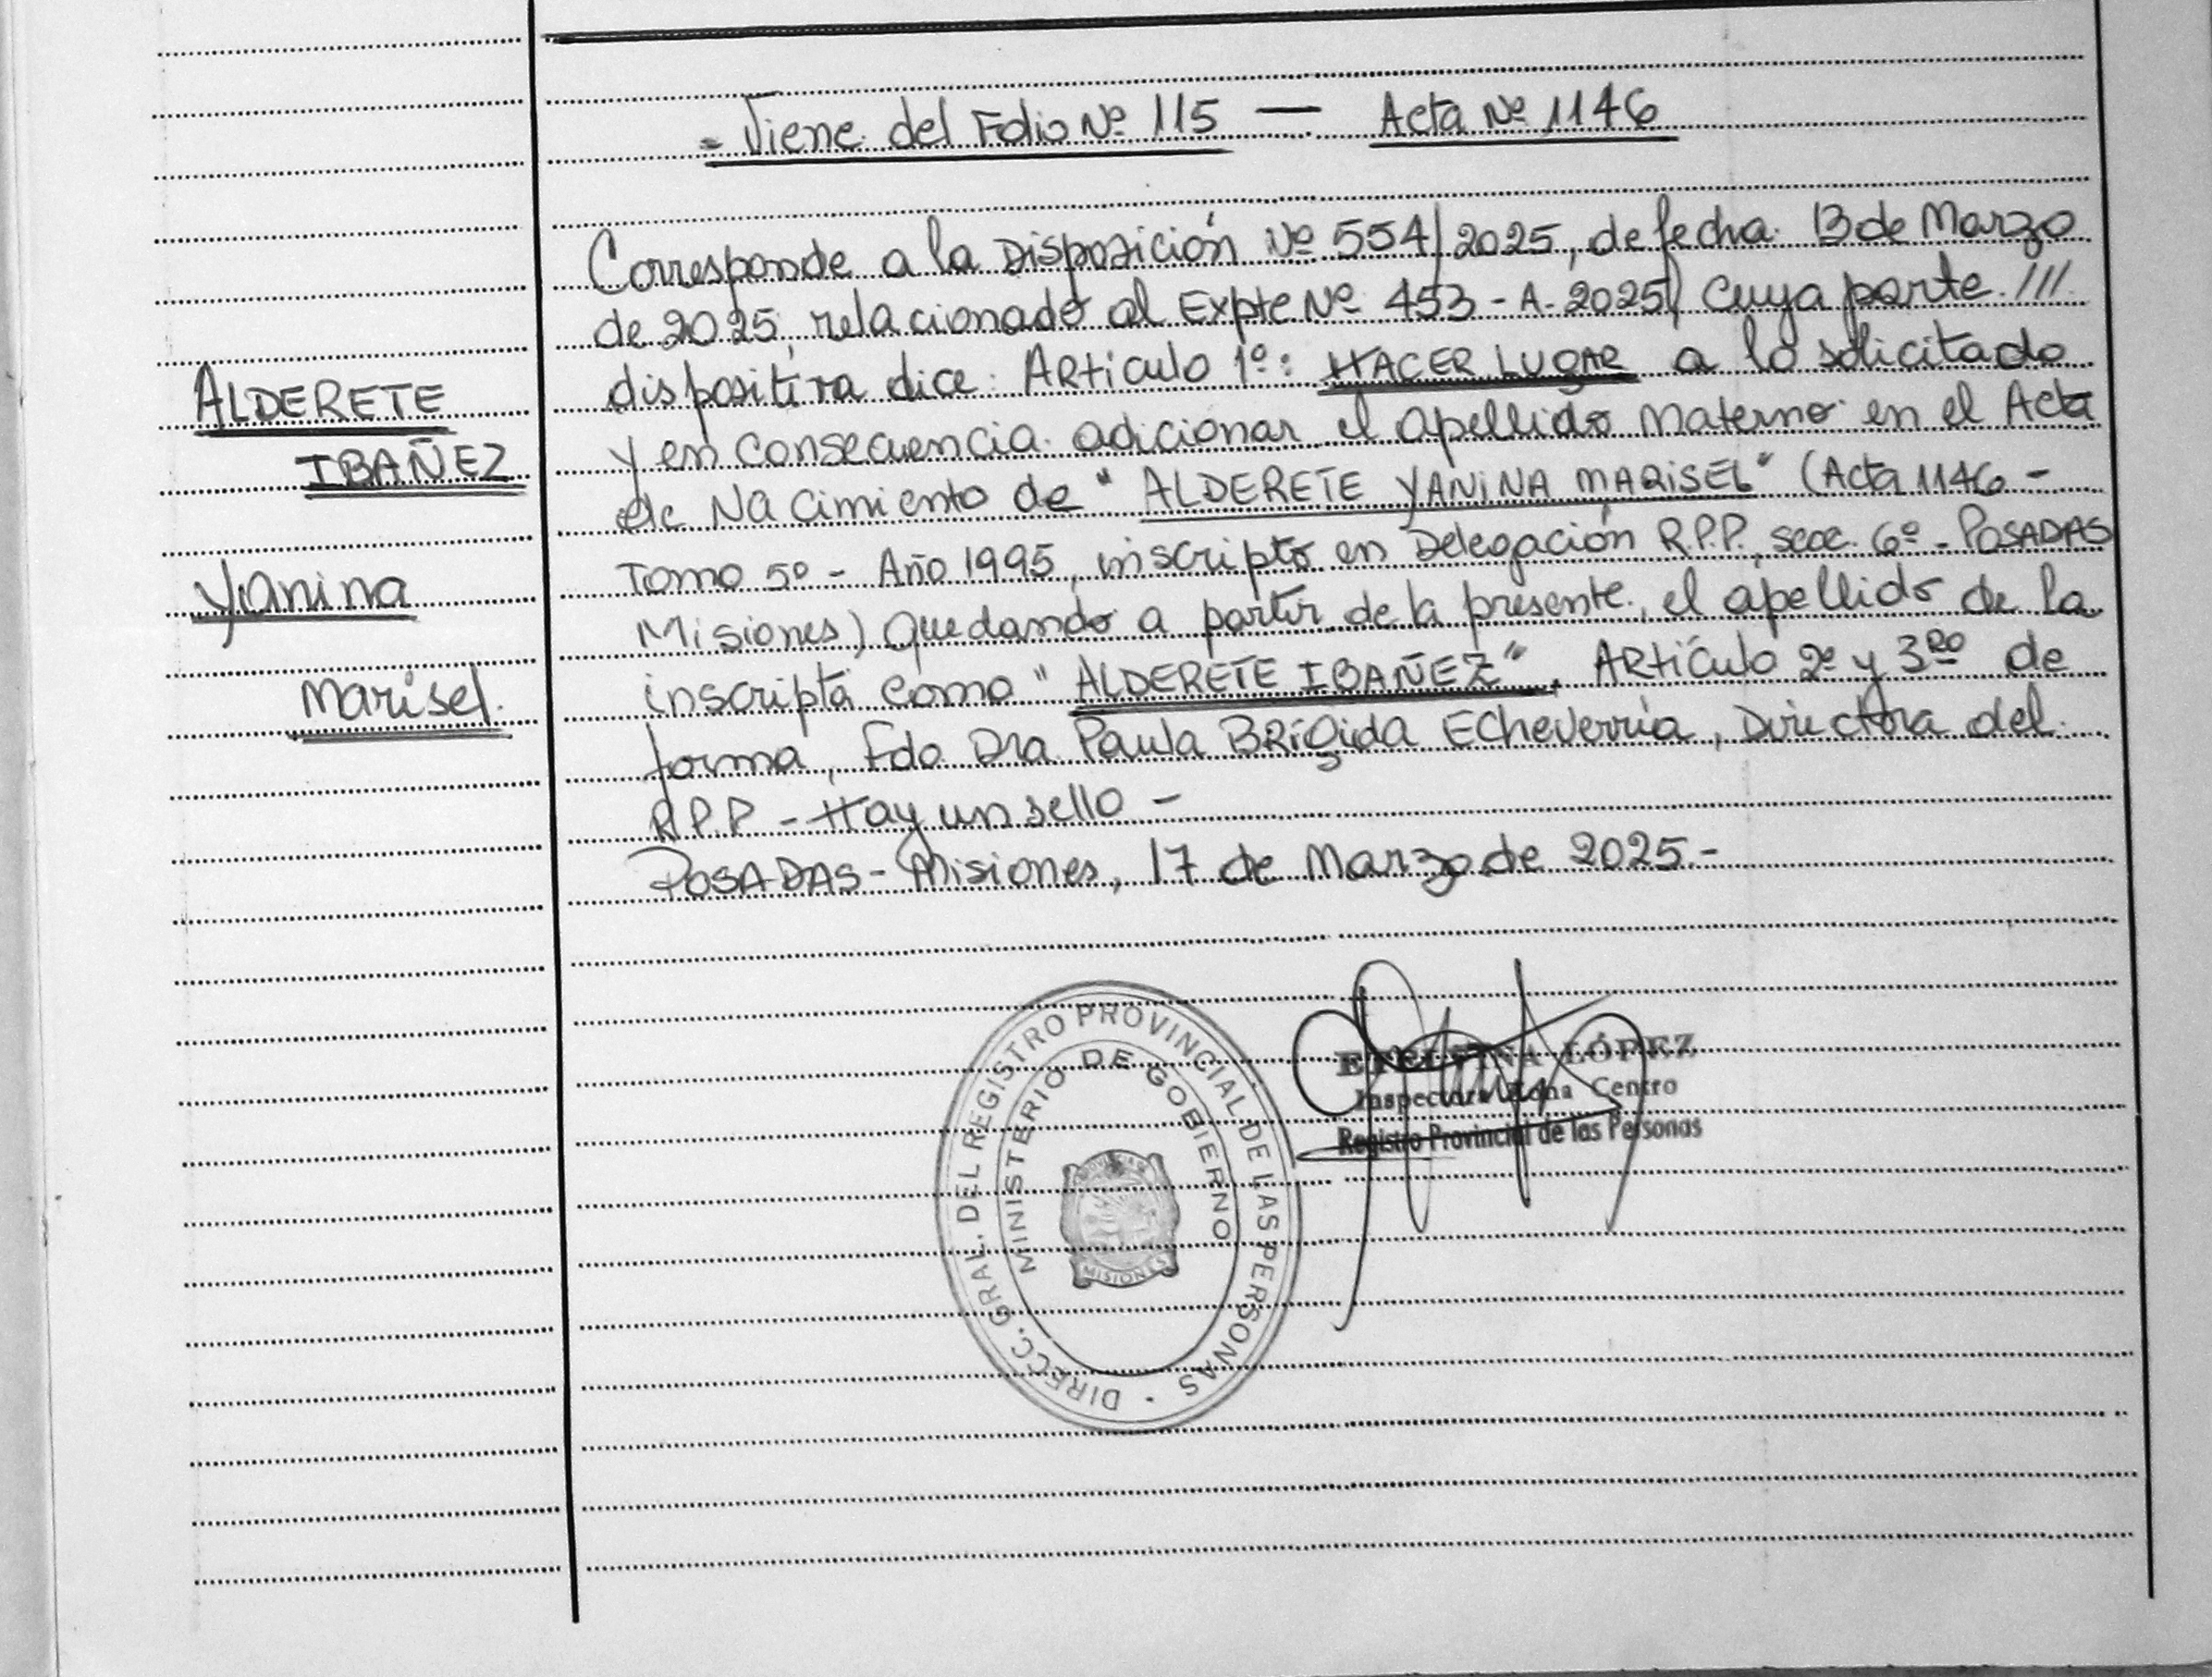 = Viene del Folio Nº 115 — Acta Nº 1146
Corresponde a la Disposición Nº 554/2025, de fecha 13 de Marzo
de 2025, relacionado al Expte Nº 453-A-2025, cuya parte ///
dispositiva dice: Artículo 1º: HACER LUGAR a lo solicitado
y en consecuencia adicionar el apellido Materno en el Acta
de Nacimiento de "ALDERETE YANINA MARISEL" (Acta 1146 -
Tomo 5º - Año 1995, inscripto en Delegación R.P.P., secc. 6º - POSADAS
Misiones) Quedando a partir de la presente, el apellido de la
inscripta como "ALDERETE IBAÑEZ", Artículo 2º y 3RO de
forma, Fdo Dra Paula Brígida Echeverría, Directora del
R.P.P - Hay un sello -
POSADAS - Misiones, 17 de Marzo de 2025.-
ALDERETE
IBAÑEZ
Yanina
Marisel.
DIRECC. GRAL. DEL REGISTRO PROVINCIAL DE LAS PERSONAS
MINISTERIO DE GOBIERNO
MISIONES
LÓPEZ
Inspectora Zona Centro
Registro Provincial de las Personas